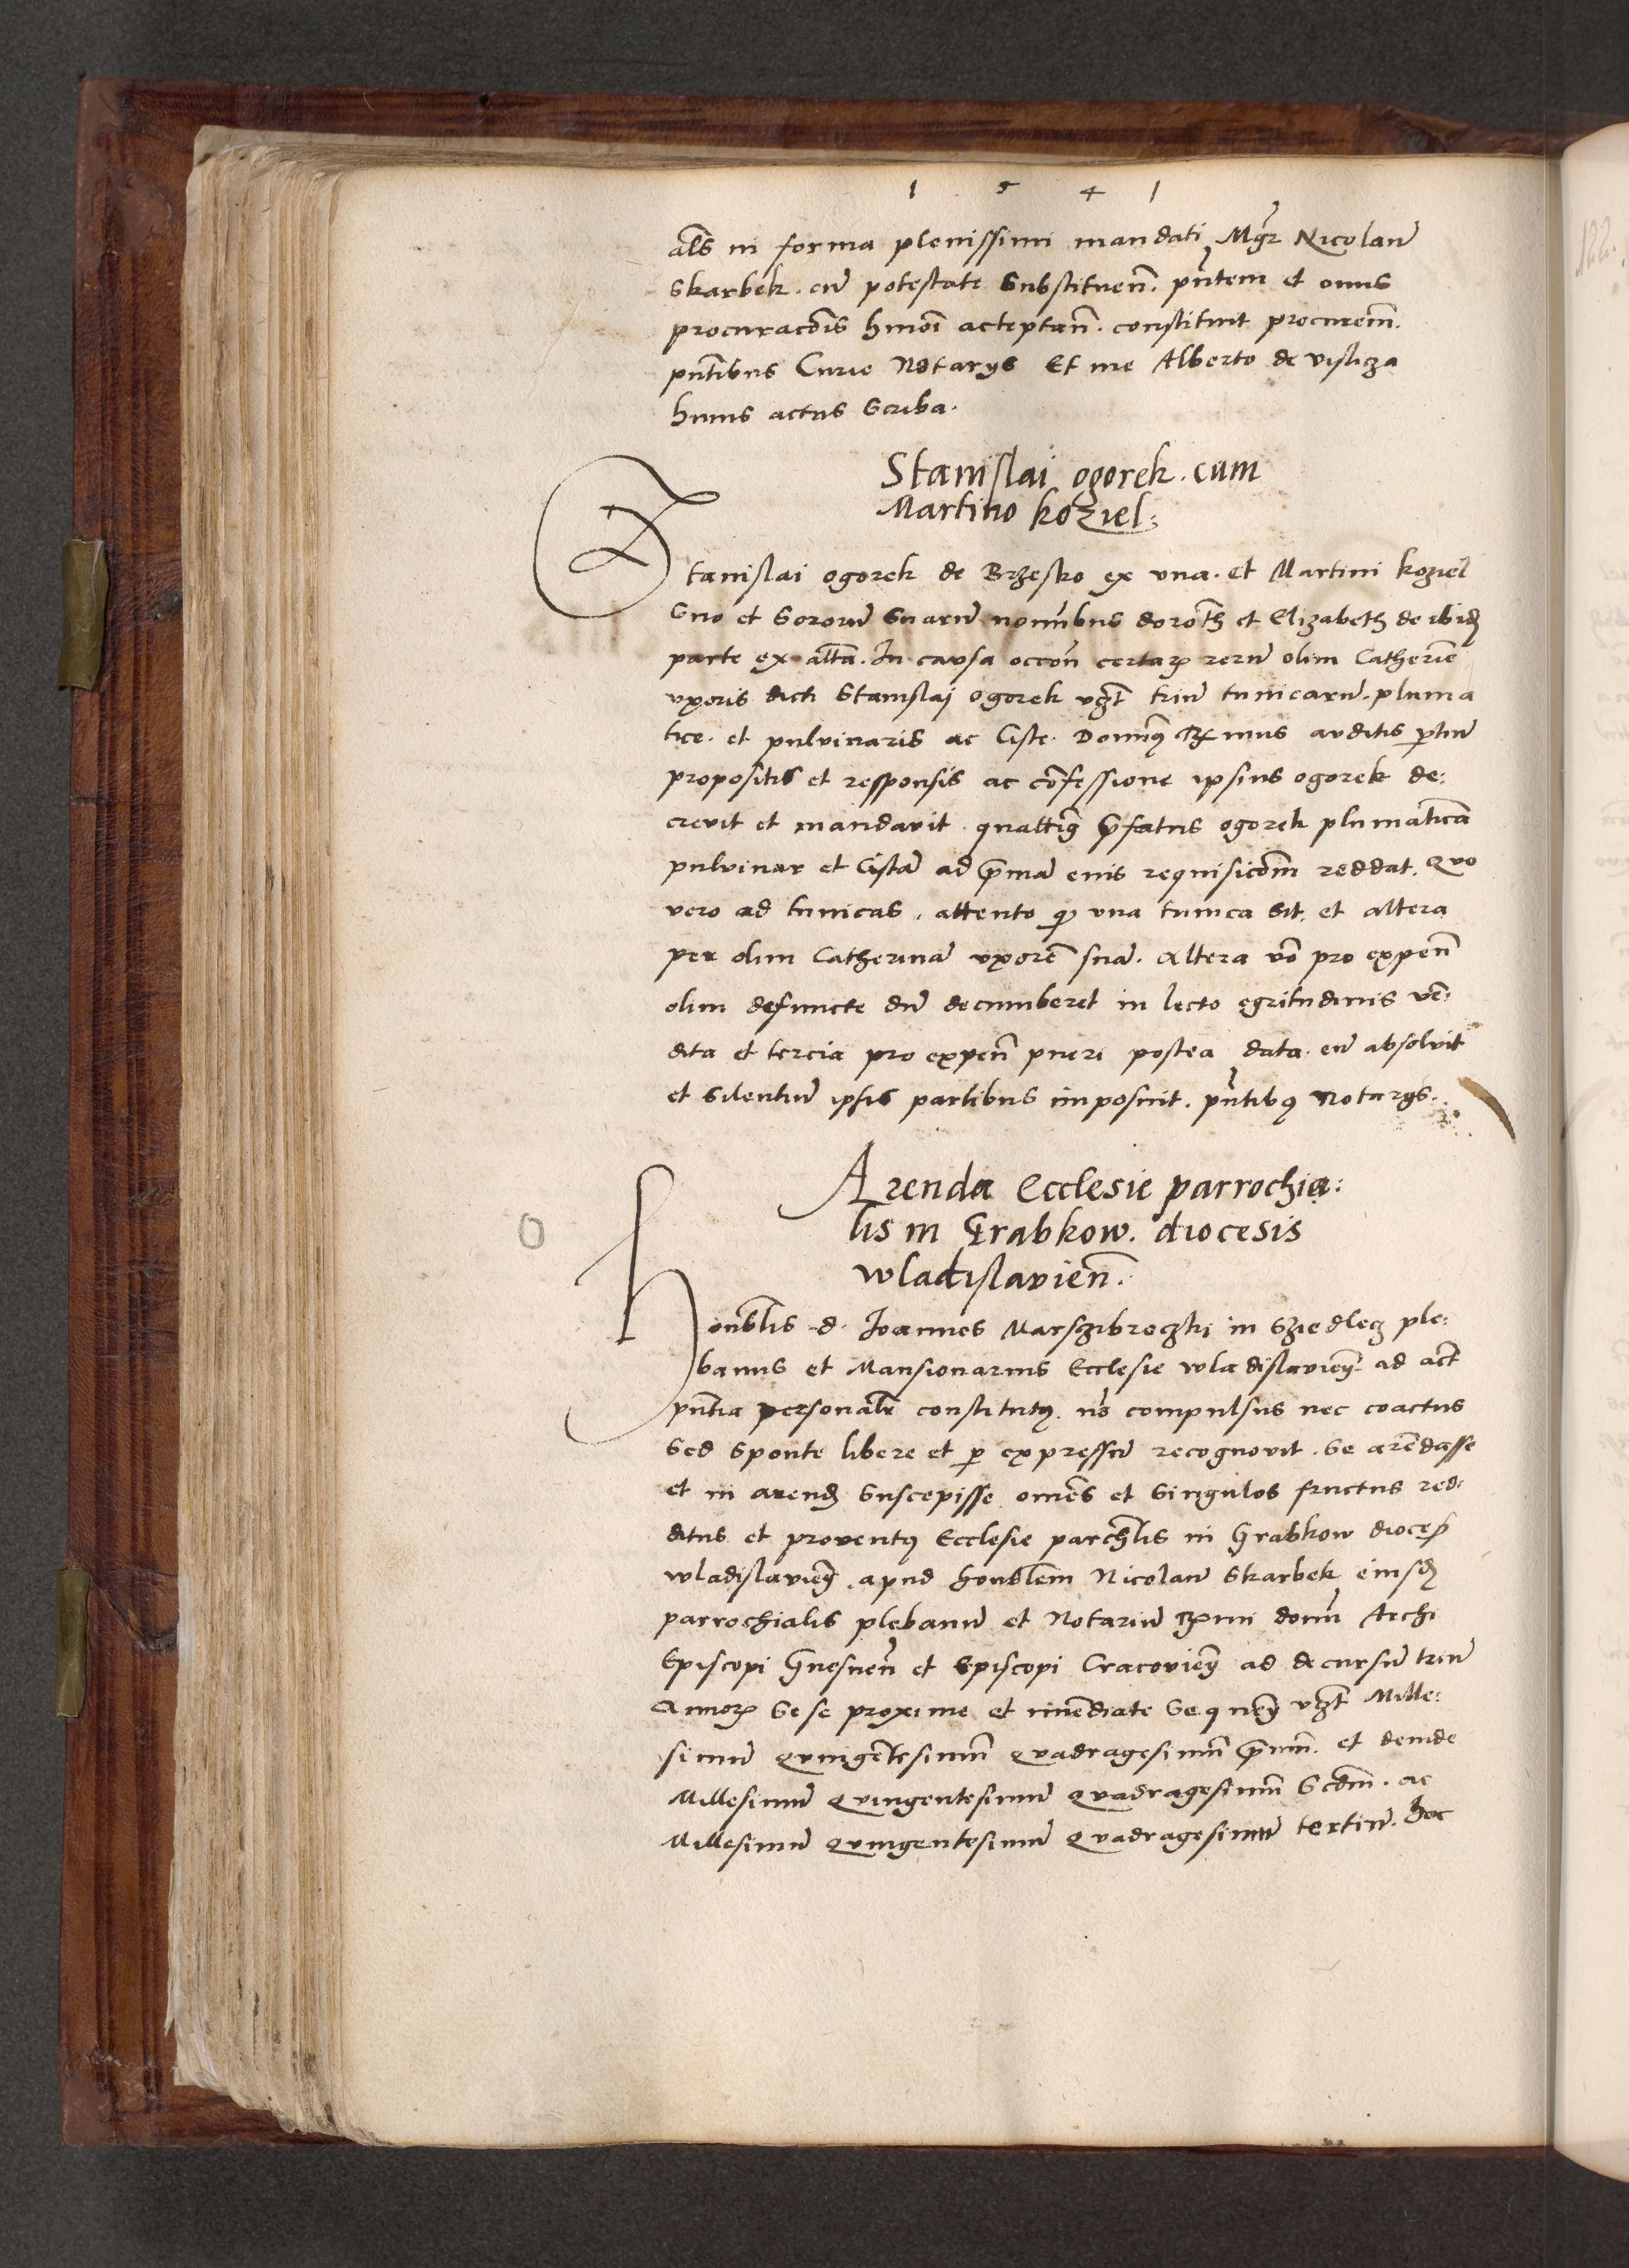 1 5 4 1
al̄s in forma plenissimi mandati Mgr̄ Nicolaū
Skarbek. cū potestate Substituen̄. pn̄tem et onus
procuracōis hmōi acceptan̄. constituit procurem̄.
pn̄tibus Curie Notarys Et me Alberto de vislicza
huius actus Scriba.
Stanislai ogorek. cum
Martino koziel.
Stanislai ogorek de Brzesko ex vna. et Martini koziel
Suo et Sororū Suarū nominībus doroth̄ et Elizabeth de ibid̄
parte ex alt̄a. In causa occōn̄ certaꝝ rerū olim Catherīe
vxoris dicti Stanislaj ogorek vꝫt̄ triū tunicarū. pluma
tice. et puluinaris ac Ciste. Dominꝰ Rx̄mus auditis ꝑtiū
propositis et responsis ac cōfessione ipsius ogorek de:
creuit et mandauit. quatt̄ꝰ p̄fatus ogorek plumaticā
puluinar et Cistā ad p̄mā eius requisicōm̄ reddat. Quo
vero ad tunicas. attento ꝙ vna tunica sit. et altera
per olim Catherinā vxorē suā. altera vō pro expen̄
olim defuncte dū decumberet in lecto egritudinis vē:
dita et tercia pro expen̄ pueri postea data. eū absoluit
et Silentiū ipsis partibus imposuit. pn̄tibꝰ Notarys.
Arenda Ecclesie parrochia:
lis in Grabkow. diocesis
wladislauien̄.
Honbl̄is d. Joannes Marschibroczki in Sziedlecz ple:
banus et Mansionarius Ecclesie wladislauien̄ ad act̄
pn̄tia personalr̄ constitutꝰ. nō compulsus nec coactus
Sed Sponte libere et ꝑ expressū recognouit. Se arēdasse
et in arend̄ Suscepisse omēs et Singulos fructus red:
ditus et prouentꝰ Ecclesie parchl̄is in Grabkow dioceſ̄
wladislauien̄. apud honbl̄em Nicolaū Skarbek eiusd̄
parrochialis plebanū et Notariū Rx̄mi domī Archi
Episcopi Gnesnen̄ et Episcopi Cracouien̄ ad decursū triū
Annoꝝ Se se proxime et imēdiate Sequen̄ vꝫt̄ Mille:
simū Quingētesimū Quadragesimū p̄mū. et deinde
Millesimū Quingentesimū Quadragesimū Scdm̄. ac
Millesimū Quingentesimū Quadragesimū tertiū. hoc
122.